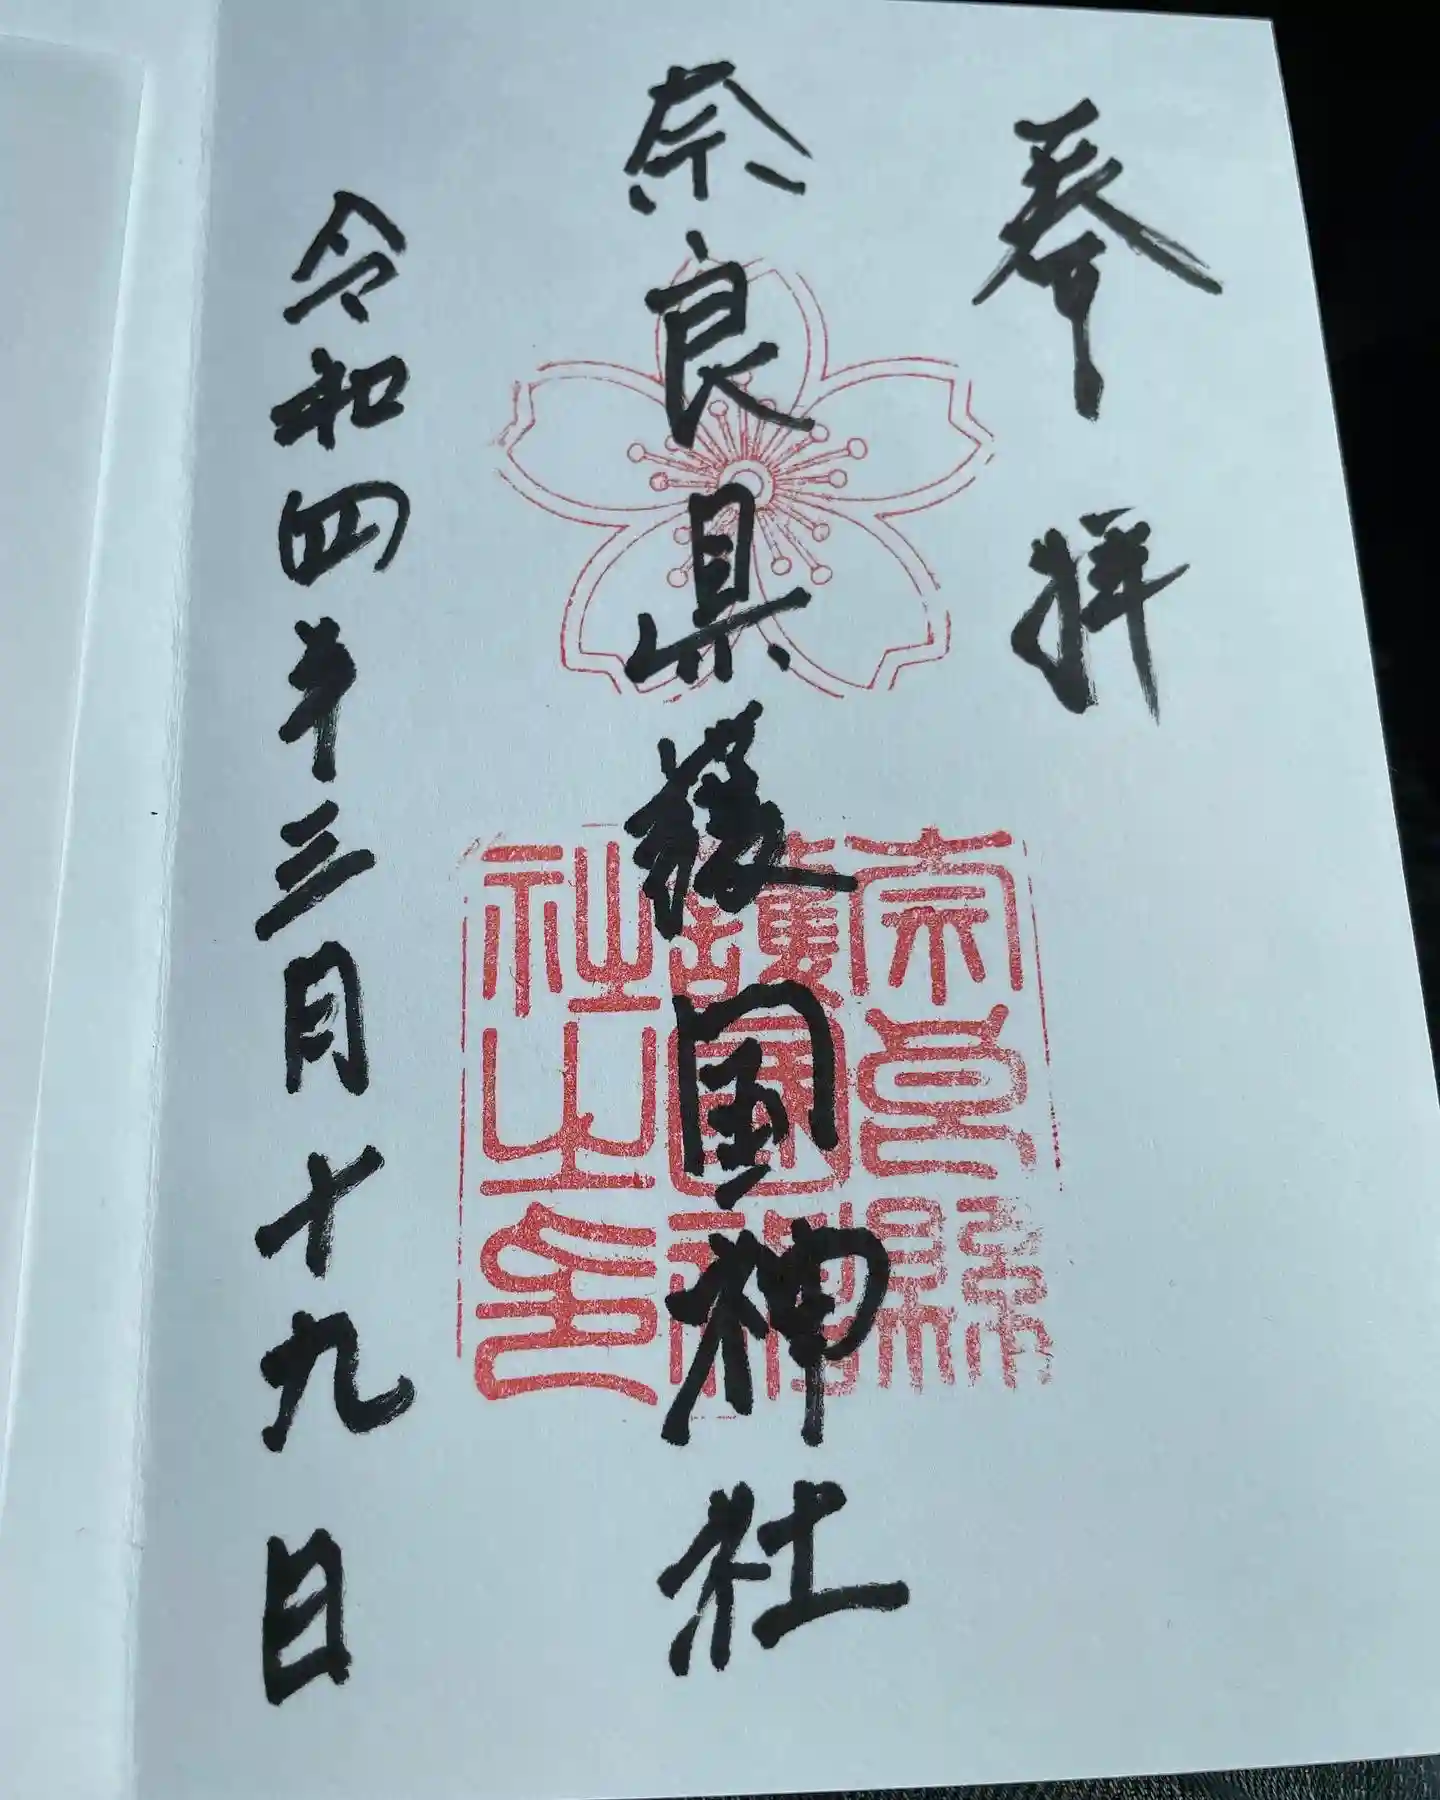 奉拝
奈良県護国神社
奈良縣
護國神
社之印
令和四年三月十九日